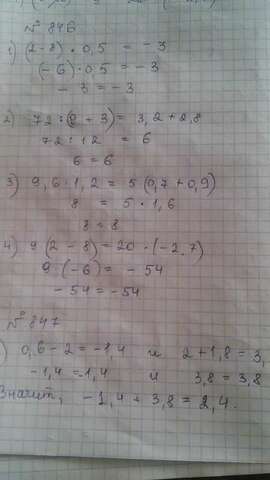 № 846
1) (2-8) · 0,5 = -3
(-6) · 0,5 = -3
-3 = -3
2) 72 : ( + 3) = 3,2 + 2,8
72 : 12 = 6
6 = 6
3) 9,6 : 1,2 = 5 (0,7 + 0,9)
8 = 5 · 1,6
8 = 8
4) 9 (2 - 8) = 20 · (-2,7)
9 · (-6) = - 54
- 54 = - 54
№ 847
) 0,6 - 2 = -1,4 и 2 + 1,8 = 3,
-1,4 = -1,4 и 3,8 = 3,8
Значит, -1,4 + 3,8 = 2,4.